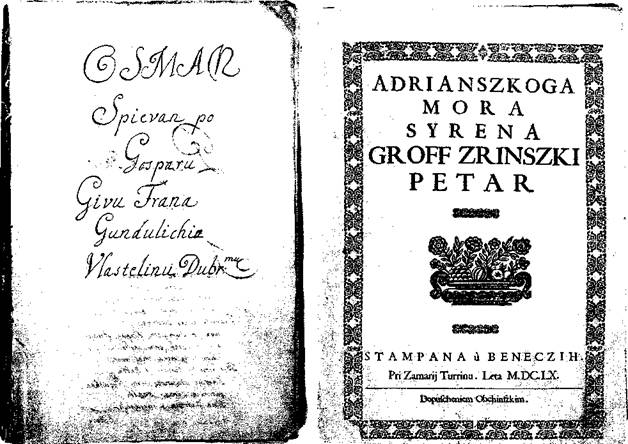 OSMAN
Spievan po
Gosparu
Givu Frana
Gundulichia
Vlastelinu Dubr.
ADRIANSZKOGA
MORA
SYRENA
GROFF ZRINSZKI
PETAR
STAMPANA ù BENECZIH.
Pri Zamarij Turrinu. Leta M.DC.LX.
Dopuscheniem Obchinszkim.